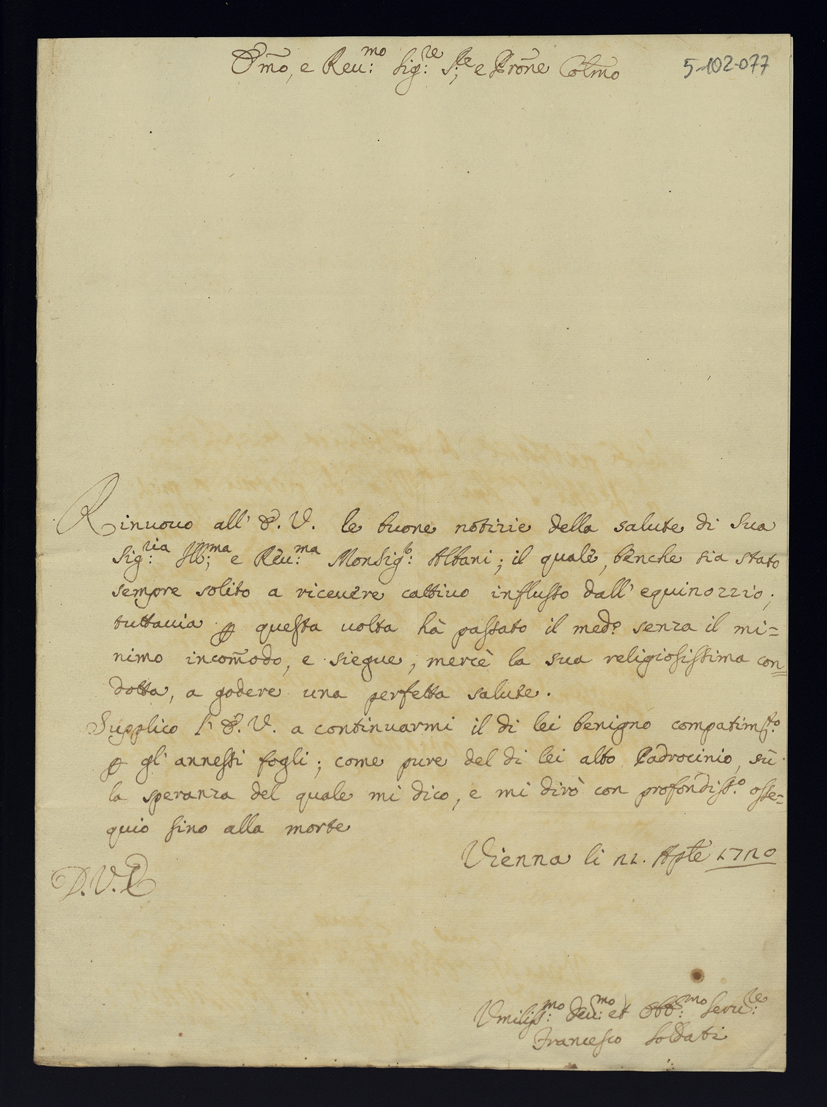 Emo, e Reu:mo Sig:re S:re e Prõne Colmo
5-102-077
Rinuouo all' E. V. le buone notizie della salute di Sua
Sig:ria Ill:ma e Reu:ma MonSig:r Albani; il quale, benche sia stato
sempre solito a riceuere cattiuo influsso dall' equinozzio;
tuttauia ꝑ questa uolta hà passato il med:o senza il mi=
nimo incom̃odo, e siegue, mercè la sua religiosissima con=
dotta, a godere una perfetta salute.
Supplico l' E. V. a continuarmi il di lei benigno compatim:to
ꝑ gl' annessi fogli; come pure del di lei alto Padrocinio, sù
la speranza del quale mi dico, e mi dirò con profondiss:o osse=
quio sino alla morte
Vienna li 21. Aple 1720
D. V. E
Vmiliss:mo Deu:mo et Obb:mo Seru:re
Francesco Soldati